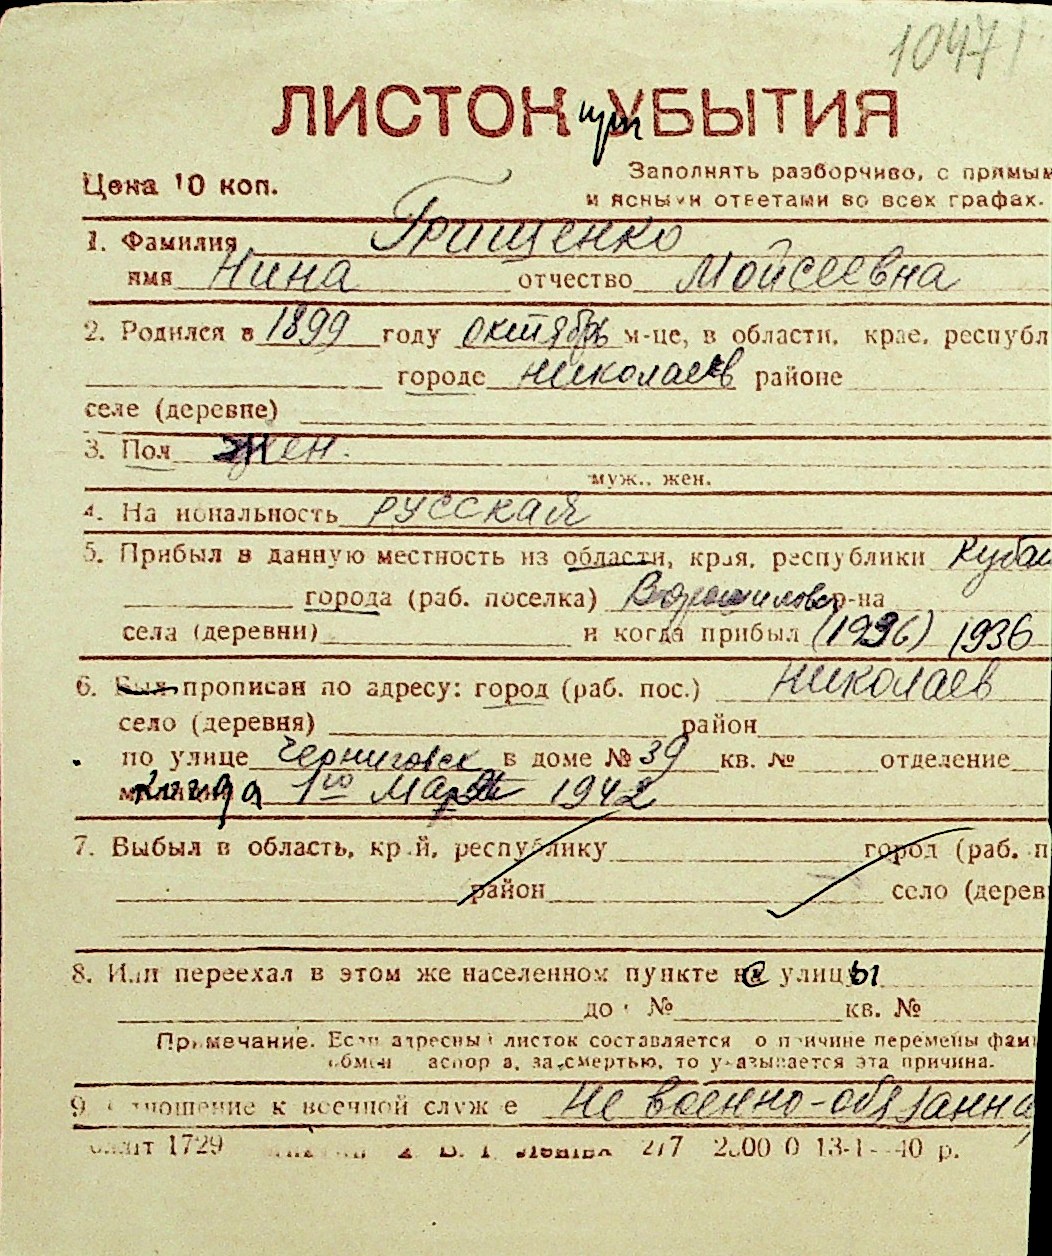 10471
ЛИСТОК при УБЫТИЯ
Цена 10 коп.
Заполнять разборчиво, с прямым
и ясными ответами во всех графах.
1. Фамилия Грищенко
имя Нина отчество Мойсеевна
2. Родился в 1899 году октябрь м-це, в области, крае, республ
городе Николаев районе
селе (деревне)
3. Пол жен.
муж., жен.
4. Национальность русская
5. Прибыл в данную местность из области, края, республики Кубан
города (раб. поселка) Ворошиловс р-на
села (деревни) и когда прибыл (1936) 1936
6. Был прописан по адресу: город (раб. пос.) Николаев
село (деревня) район
по улице Черниговск в доме № 39 кв. № отделение
когда 1го Марта 1942
7. Выбыл в область, край, республику город (раб. п
район село (дерев
8. Или переехал в этом же населенном пункте с улицы
дом № кв. №
Примечание. Если адресный листок составляется по причине перемены фам
обмен паспорта, за смертью, то указывается эта причина.
9. Отношение к военной службе Не военно-обязанна
1729 2/7 13-1--40 р.